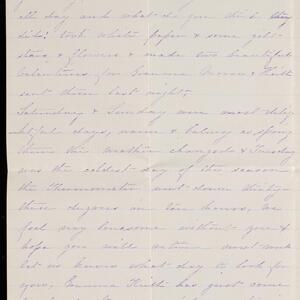 all day and what do you think they
did? took white paper & some gilt
stars & flowers & made two beautiful
Valentines for Gramma Moran & Keith
sent them last night.
Saturday & Sunday were most delight-
ful days, warm & balmy as spring
then the weather changed & Tuesday
was the coldest day of the season
the Thermometer went down thirty
three degrees in ten hours, we
feel very lonesome without you &
hope you will return next week
let us know what day to look for
you, Gramma Keith has just come